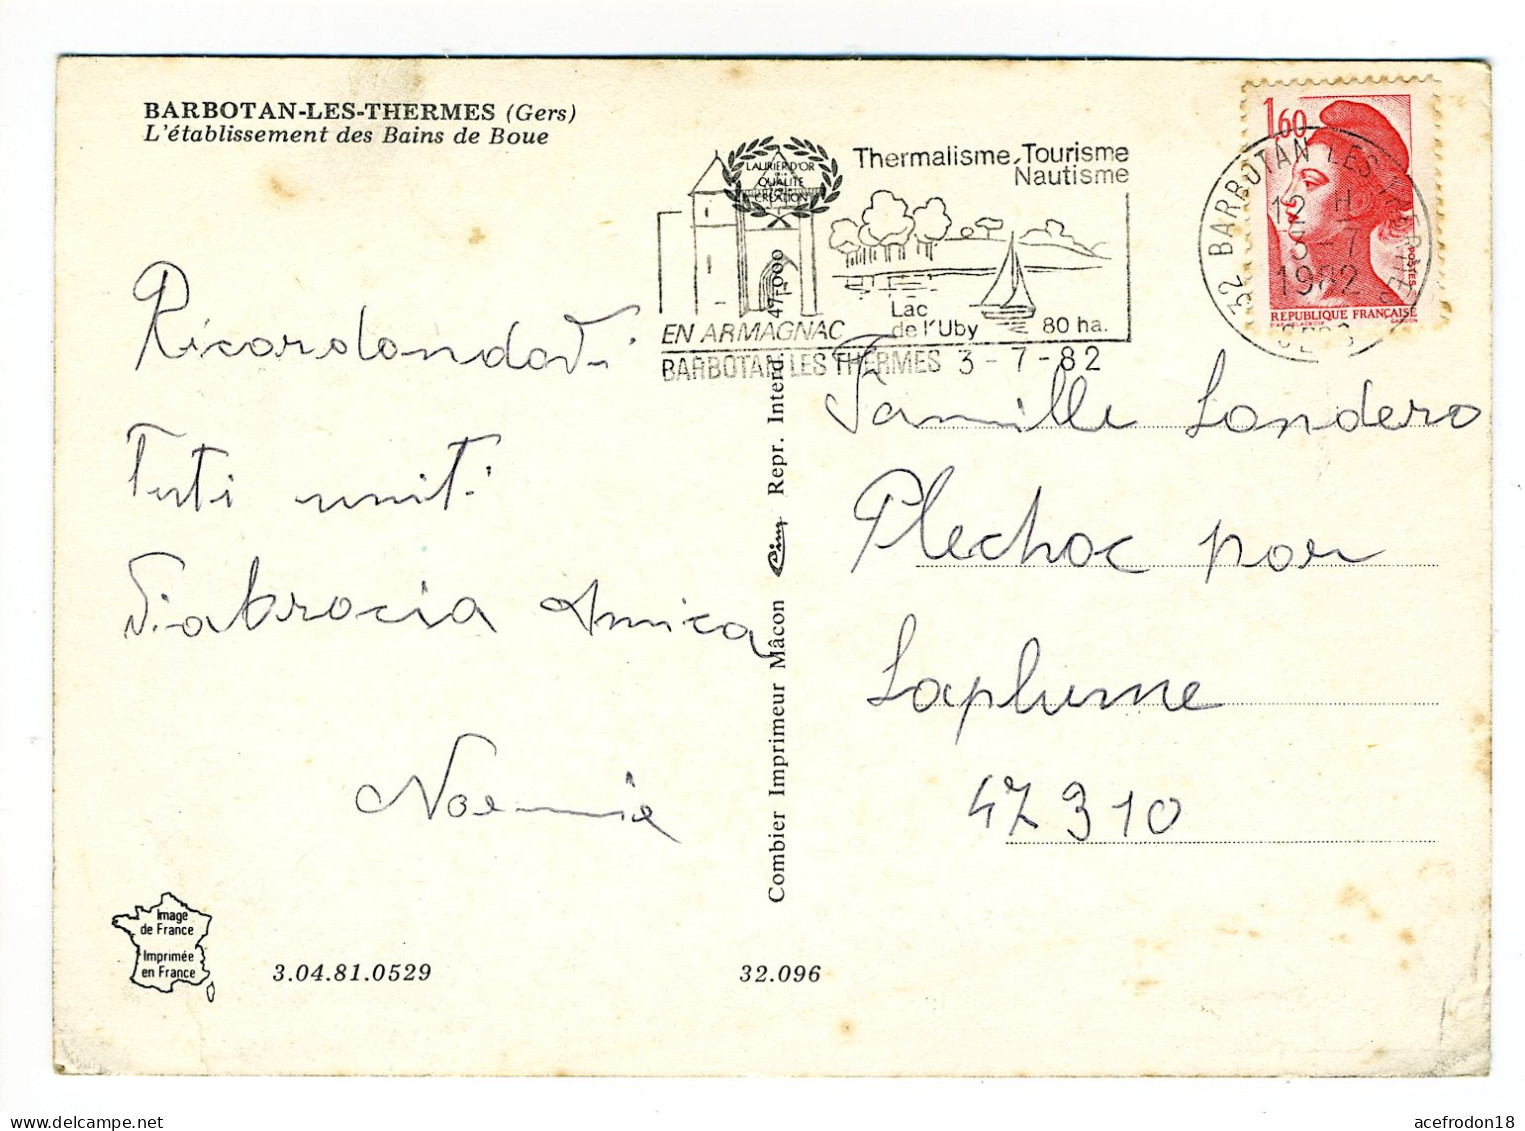 BARBOTAN-LES-THERMES (Gers)
L'établissement des Bains de Boue
LAURIER D'OR
QUALITÉ
CRÉATION
Thermalisme, Tourisme
Nautisme
EN ARMAGNAC
Lac
de l'Uby
80 ha.
BARBOTAN LES THERMES 3-7-82
32 BARBOTAN LES THERMES
12 H
5-7
1982
GERS
1,60
POSTES
REPUBLIQUE FRANÇAISE
D'AP. DELACROIX GANDON
Ricordandovi
Tuti uniti
Viabrocia Amica
Noemie
Combier Imprimeur Mâcon Cim Repr. Interd. 47.000
Famille Landero
Plechac par
Laplume
47310
Image
de France
Imprimée
en France
3.04.81.0529
32.096
acefrodon18